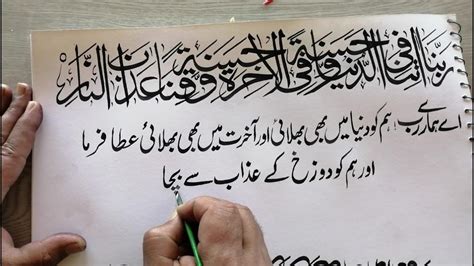 ربنا اتنا فی الدنیا حسنة و فی الاخرة حسنة و قنا عذاب النار
اے ہمارے رب! ہم کو دنیا میں بھی بھلائی اور آخرت میں بھی بھلائی عطا فرما
اور ہم کو دوزخ کے عذاب سے بچا